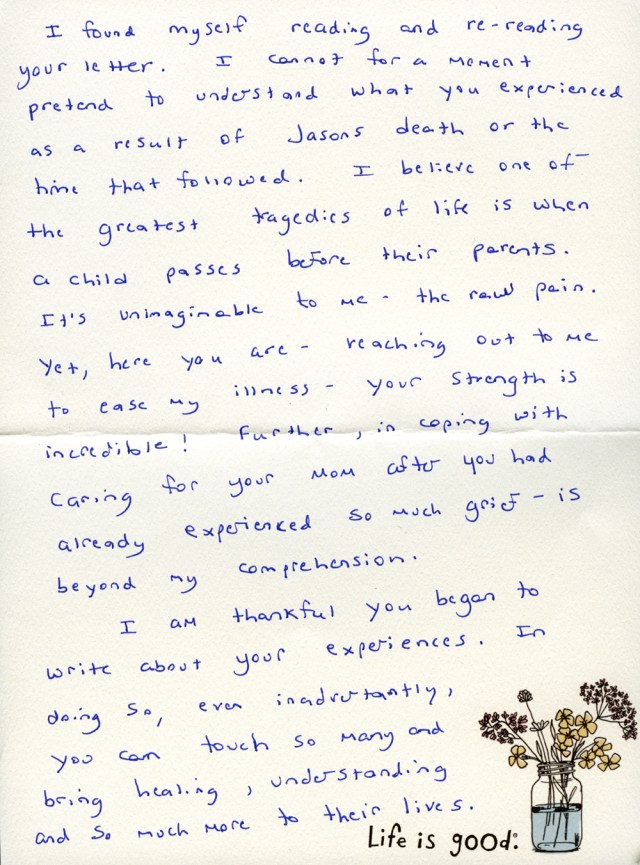 I found myself reading and re-reading
your letter. I cannot for a moment
pretend to understand what you experienced
as a result of Jasons death or the
time that followed. I believe one of
the greatest tragedies of life is when
a child passes before their parents.
It's unimaginable to me - the raw pain.
Yet, here you are - reaching out to me
to ease my illness - your strength is
incredible! Further, in coping with
caring for your mom after you had
already experienced so much grief - is
beyond my comprehension.
I am thankful you began to
write about your experiences. In
doing so, even inadvertantly,
you can touch so many and
bring healing, understanding
and so much more to their lives.
Life is good: